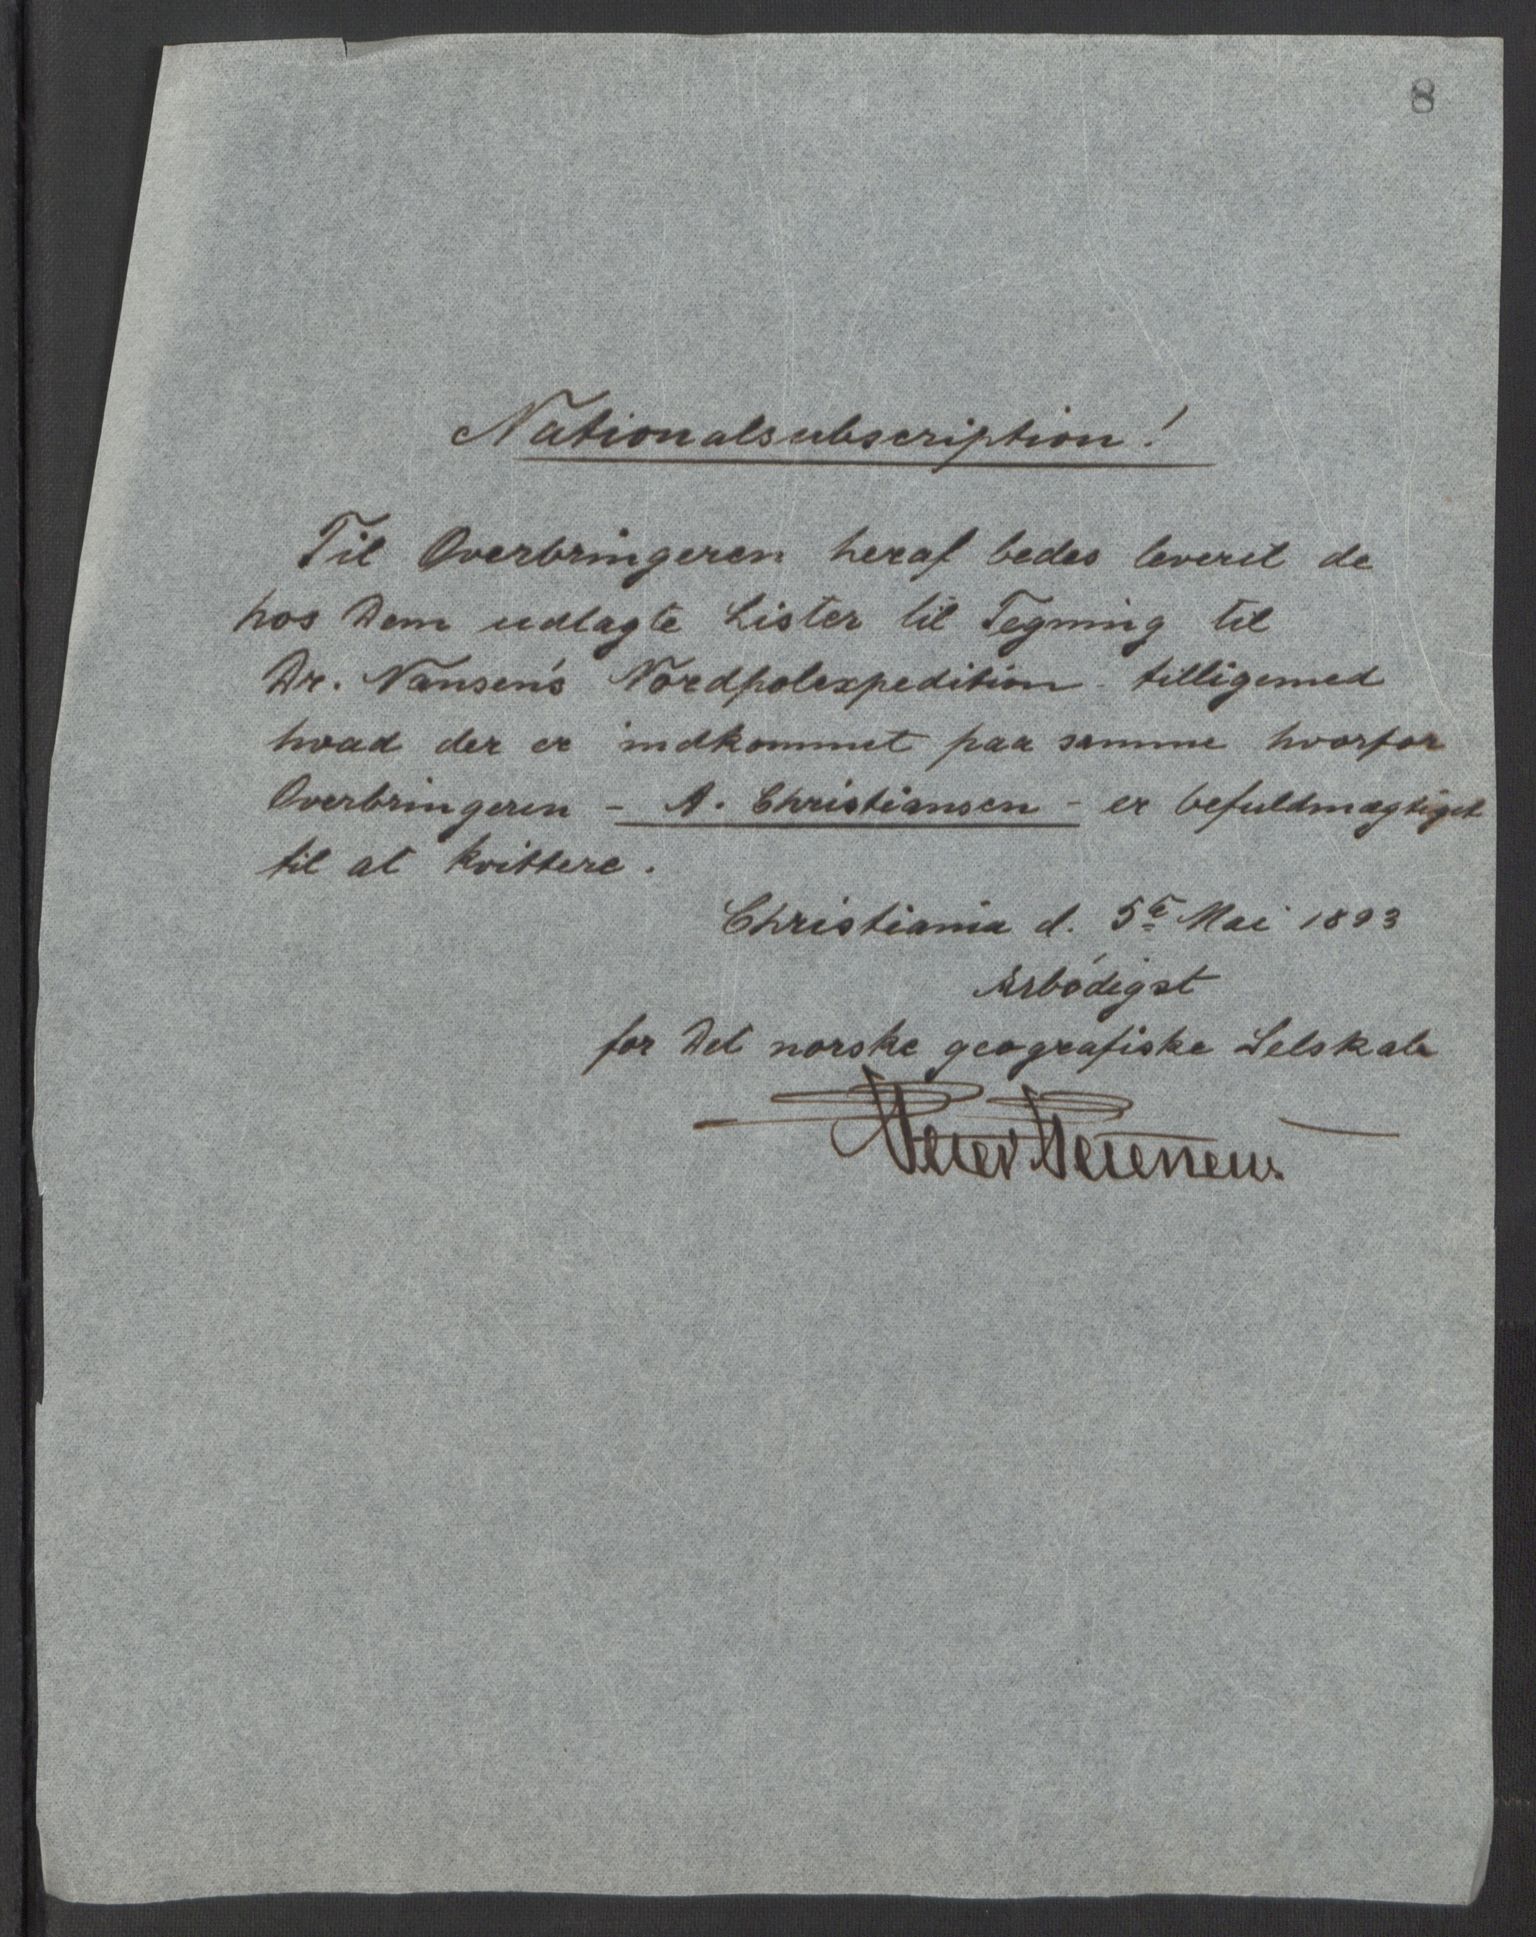 8
Nationalsubscription!
Til Overbringeren heraf bedes leveret de
hos Dem udlagte Lister til Tegning til
Dr. Nansen's Nordpolexpedition tilligemed
hvad der er indkommet paa samme hvorfor
Overbringeren – A. Christiansen – er befuldmægtiget
til at kvittere.
Christiania d. 5te Mai 1893
Ærbödigst
for Det norske geografiske Selskab
Peter Petersen.